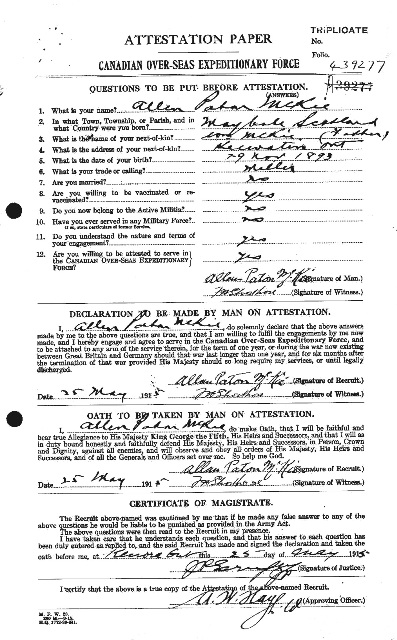 TRIPLICATE
No.
ATTESTATION PAPER
Folio.
CANADIAN OVER-SEAS EXPEDITIONARY FORCE
439277
QUESTIONS TO BE PUT BEFORE ATTESTATION.
(ANSWERS)
1. What is your name? Allan Paton McKie
2. In what Town, Township, or Parish, and in what Country were you born? Maybole Scotland
3. What is the Name of your next-of-kin? Wm McKie (Father)
4. What is the address of your next-of-kin? Keewatin Ont
5. What is the date of your birth? 29 Nov 1893
6. What is your trade or calling? Miller
7. Are you married? no
8. Are you willing to be vaccinated or re-vaccinated? yes
9. Do you now belong to the Active Militia? no
10. Have you ever served in any Military Force? no
If so, state particulars of former Service.
11. Do you understand the nature and terms of your engagement? yes
12. Are you willing to be attested to serve in the CANADIAN OVER-SEAS EXPEDITIONARY FORCE? yes
Allan Paton McKie (Signature of Man.)
(Signature of Witness.)
DECLARATION TO BE MADE BY MAN ON ATTESTATION.
I, Allan Paton McKie, do solemnly declare that the above answers
made by me to the above questions are true, and that I am willing to fulfil the engagements by me now
made, and I hereby engage and agree to serve in the Canadian Over-Seas Expeditionary Force, and
to be attached to any arm of the service therein, for the term of one year, or during the war now existing
between Great Britain and Germany should that war last longer than one year, and for six months after
the termination of that war provided His Majesty should so long require my services, or until legally
discharged.
Allan Paton McKie (Signature of Recruit.)
Date 25 May 1915 (Signature of Witness.)
OATH TO BE TAKEN BY MAN ON ATTESTATION.
I, Allan Paton McKie, do make Oath, that I will be faithful and
bear true Allegiance to His Majesty King George the Fifth, His Heirs and Successors, and that I will as
in duty bound honestly and faithfully defend His Majesty, His Heirs and Successors, in Person, Crown
and Dignity, against all enemies, and will observe and obey all orders of His Majesty, His Heirs and
Successors, and of all the Generals and Officers set over me. So help me God.
Allan Paton McKie (Signature of Recruit.)
Date 25 May 1915 (Signature of Witness.)
CERTIFICATE OF MAGISTRATE.
The Recruit above-named was cautioned by me that if he made any false answer to any of the
above questions he would be liable to be punished as provided in the Army Act.
The above questions were then read to the Recruit in my presence.
I have taken care that he understands each question, and that his answer to each question has
been duly entered as replied to, and the said Recruit has made and signed the declaration and taken the
oath before me, at Kenora Ont this 25 day of May 1915
(Signature of Justice.)
I certify that the above is a true copy of the Attestation of the above-named Recruit.
(Approving Officer.)